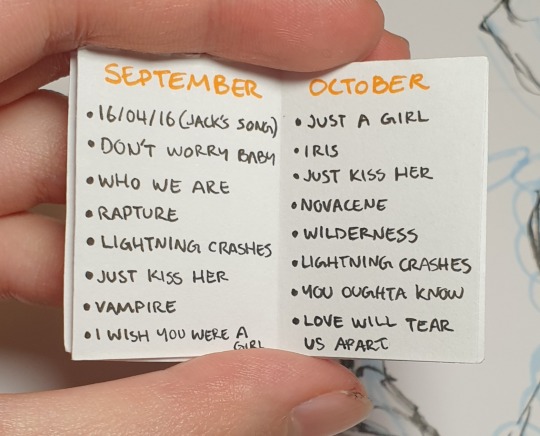 SEPTEMBER
• 16/04/16 (JACK'S SONG)
• DON'T WORRY BABY
• WHO WE ARE
• RAPTURE
• LIGHTNING CRASHES
• JUST KISS HER
• VAMPIRE
• I WISH YOU WERE A
GIRL
OCTOBER
• JUST A GIRL
• IRIS
• JUST KISS HER
• NOVACENE
• WILDERNESS
• LIGHTNING CRASHES
• YOU OUGHTA KNOW
• LOVE WILL TEAR
US APART